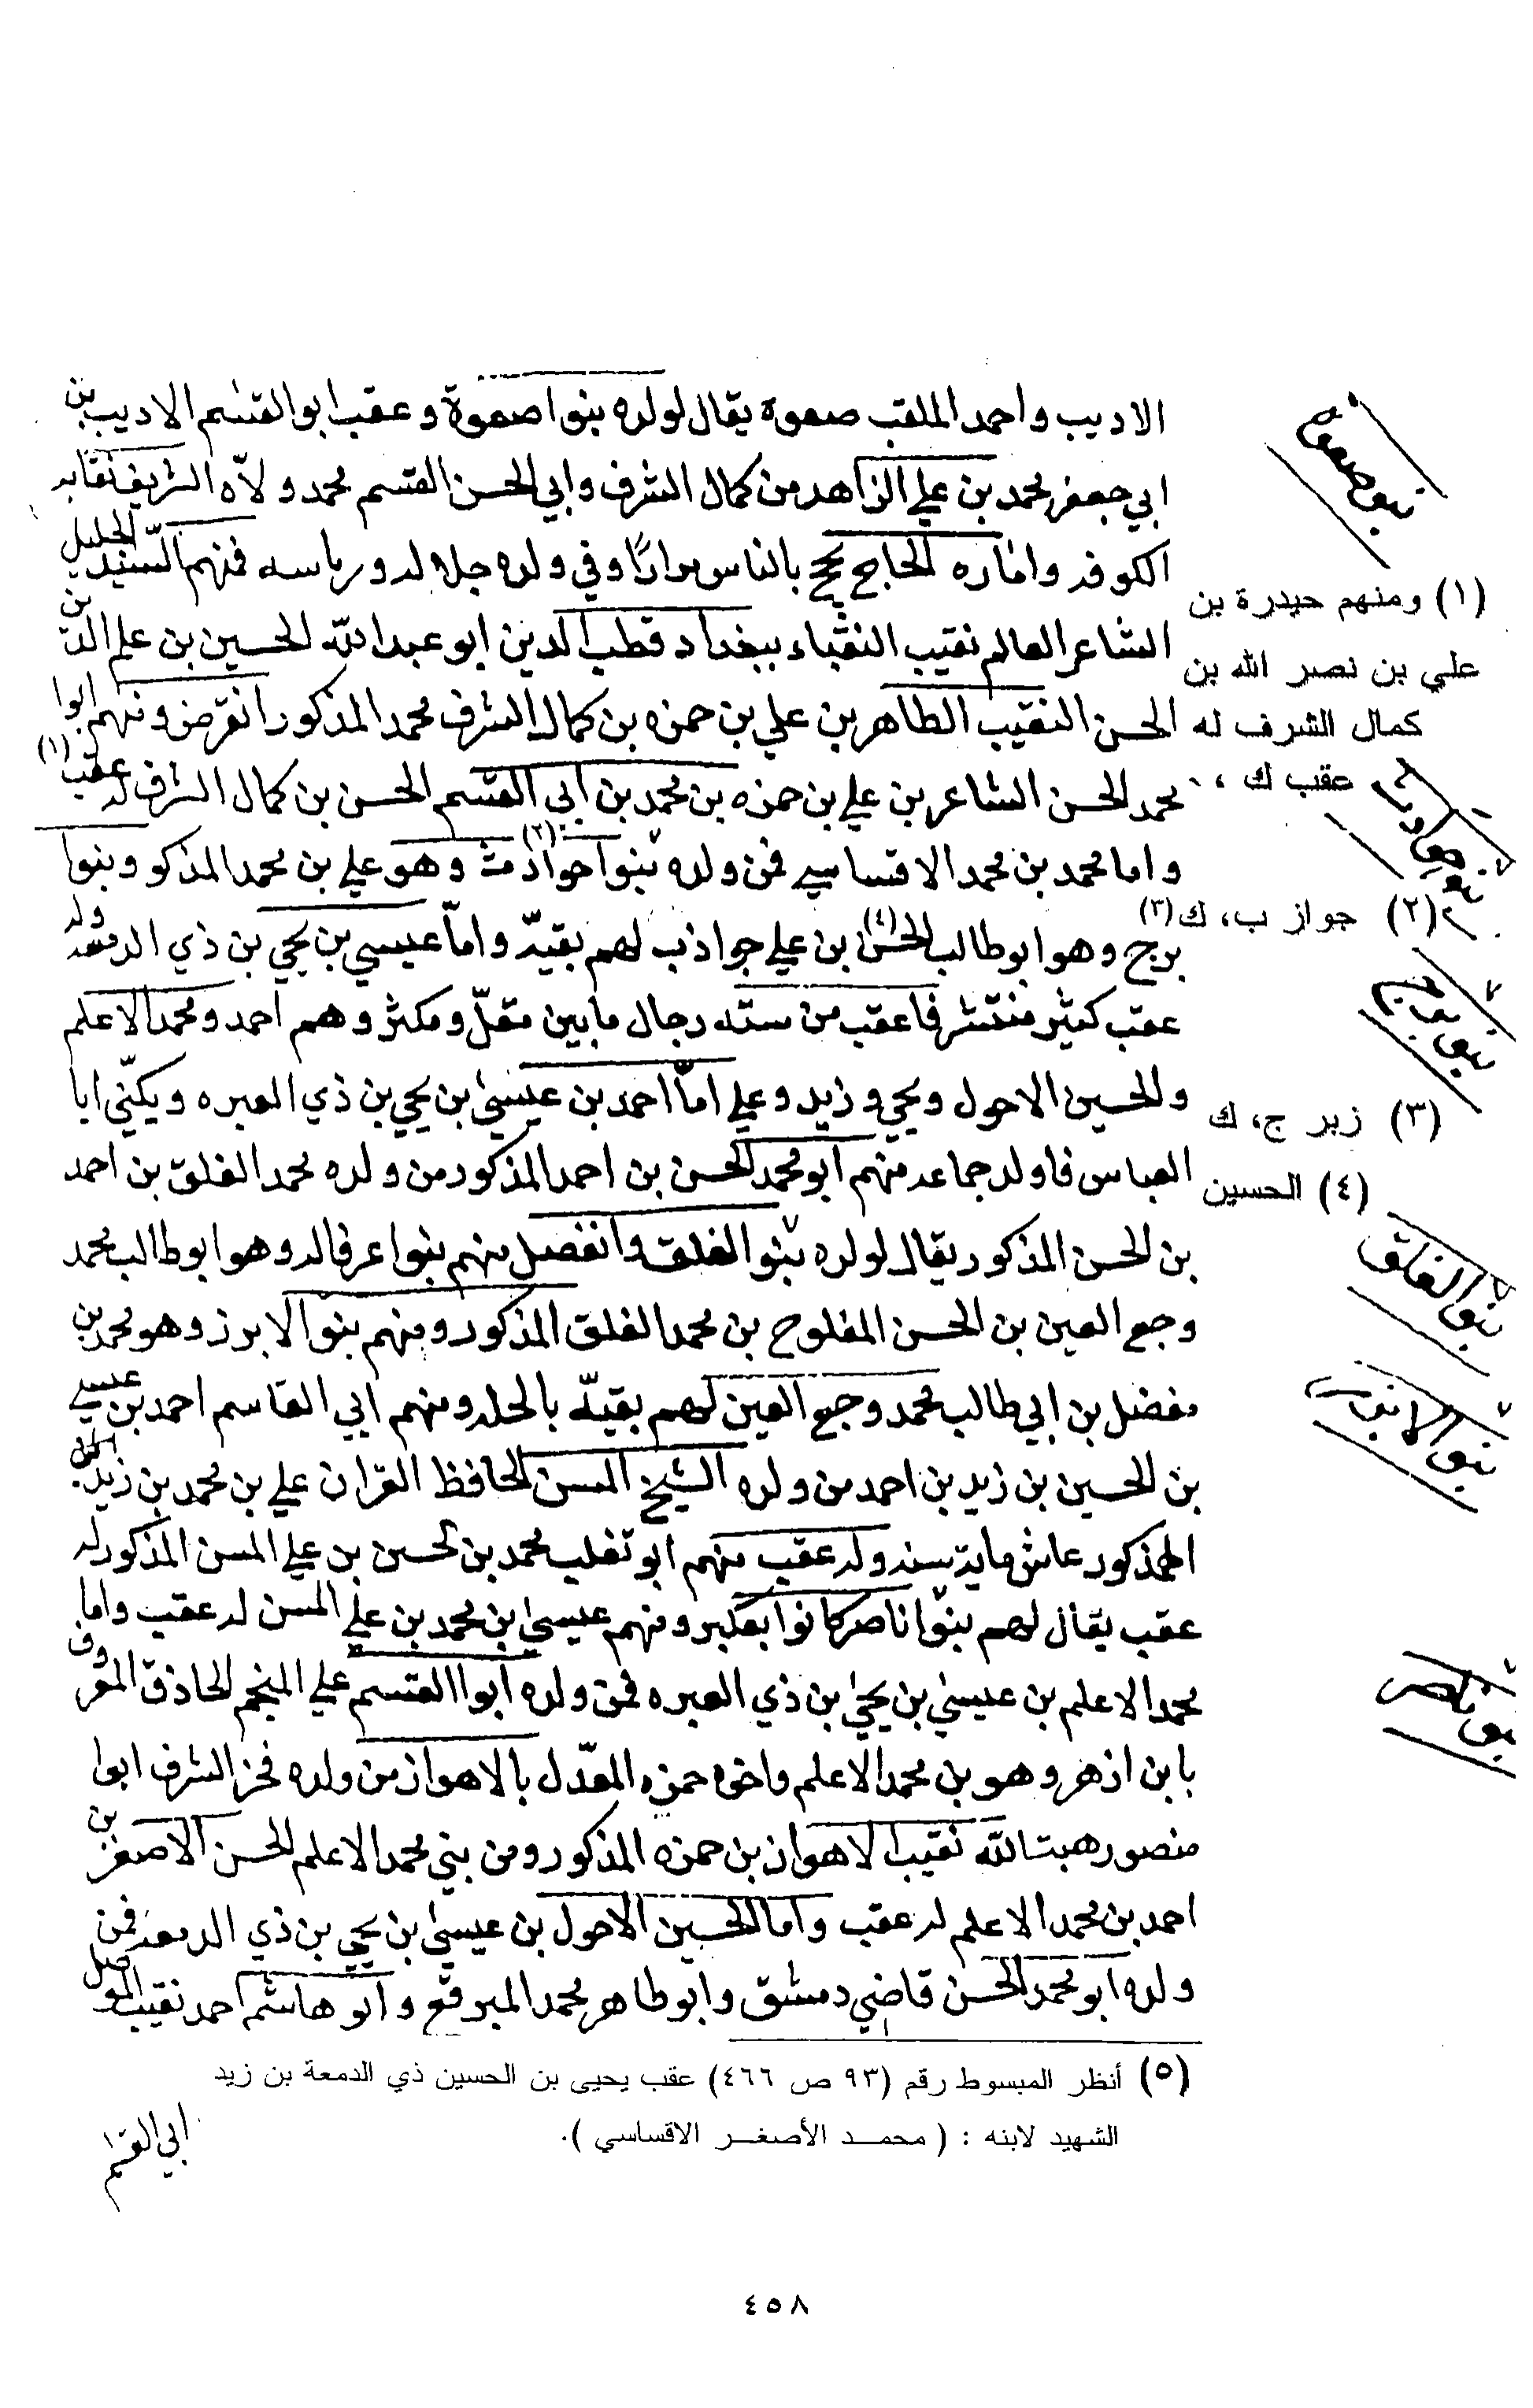 الاديب واحمد الملقب صعوة يقال لولده بنوا صعوة وعقب ابو القسم الاديب بن
ابي جعفر محمد بن علي الزاهد من كمال الشرف وابي الحسن القسم محمد ولاّه الشريف نقابه
الكوفه واماره الحاج يحج بالناس مرارًا وفي ولده جلاله ورياسه فمنهم السّيد الجليل
الشاعر العالم نقيب النقباء ببغداد قطب الدين ابو عبد الله الحسين بن علم الدين بن
الحسن النقيب الطاهر بن علي بن حمزه بن كمال الشرف محمد المذكور انقرض ومنهم ابوا
محمد الحسن الشاعر بن علي بن حمزه بن محمد بن ابي القسم الحسن بن كمال الشرف له عقب (١)
واما محمد بن محمد الاقساسي فمن ولده بنوا جواذب (٢) وهو علي بن محمد المذكو وبنوا
برج وهو ابو طالب الحسن (٤) بن علي جواذب لهم بقيّه وامّا عيسي بن يحيي بن ذي الدمعه وله
عقب كثير منتشر فاعقب من سته رجال ما بين مقلّ ومكثر وهم احمد ومحمد الاعلم
والحسين الاحول ويحيي وزيد وعلي امّا احمد بن عيسىٰ بن يحيي بن ذي العبره ويكنّي ابا
العباس فاولد جماعه منهم ابو محمد الحسن بن احمد المذكور من ولده محمد الغلق بن احمد
بن الحسن المذكور يقال لولده بنو الغلق وانفصل منهم بنوا عرفاله وهو ابو طالب محمد
وجع العين بن الحسن المفلوح بن محمد الغلق المذكور ومنهم بنو الابرز وهو محمد بن
مفضل بن ابي طالب محمد وجع العين لهم بقيّه بالحله ومنهم ابي القاسم احمد بن عيسي
بن الحسين بن زيد بن احمد من ولده الشيخ المسن الحافظ القران علي بن محمد بن زيد
المذكور عاش مايه سنه وله عقب منهم ابو تغلب محمد بن الحسين بن علي المسن المذكور له
عقب يقال لهم بنوا ناصر كانوا بعكبر ومنهم عيسىٰ بن محمد بن علي المسن له عقب واما
محمد الاعلم بن عيسىٰ بن يحيىٰ بن ذي العبره فمن ولده ابوا القسم علي المنجم الحاذق المعروف
بابن ازهر وهو بن محمد الاعلم واخوه حمزه المعّدل بالاهواز من ولده فخر الشرف ابوا
منصور هبت الله نقيب الاهواز بن حمزه المذكور ومن بني محمد الاعلم الحسن الاصغر بن
احمد بن محمد الاعلم له عقب واما الحسين الاحول بن عيسىٰ بن يحيي بن ذي الدمعه فمن
ولده ابو محمد الحسن قاضي دمشق وابو طاهر محمد المبرقع وابو هاشم احمد نقيب الموصل
بنو صعوه
(١) ومنهم حيدرة بن
علي بن نصر الله بن
كمال الشرف له
عقب ك ،
(٢) جواز ب، ك (٣)
(٣) زبر ج، ك
(٤) الحسين
بنو الغلق
بنو ناصر
(٥) أنظر المبسوط رقم (٩٣ ص ٤٦٦) عقب يحيى بن الحسين ذي الدمعة بن زيد
الشهيد لابنه : ( محمـــد الأصغـــر الاقساسي ).
ابي القسم
٤٥٨